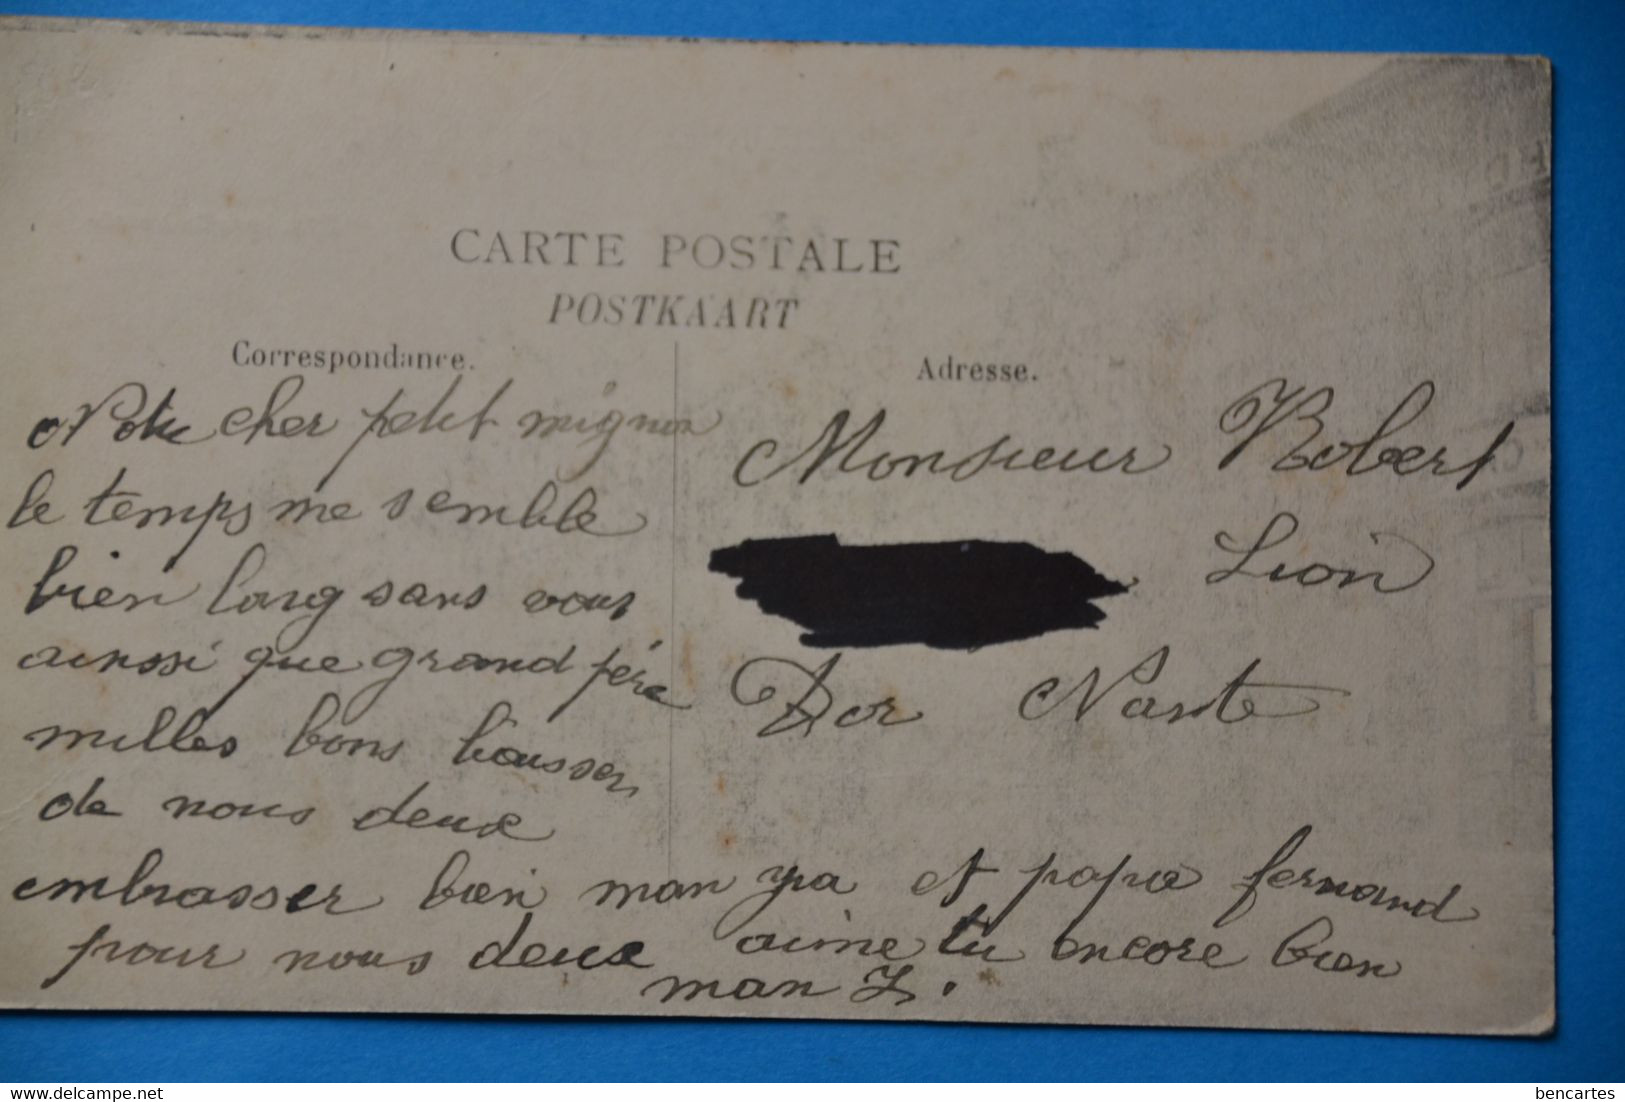 CARTE POSTALE
POSTKAART
Correspondance.
Notre cher petit mignon
le temps me semble
bien long sans vous
ainssi que grand pére
milles bons baisser
de nous deux
embrasser bien man ya et papa fernand
pour nous deux aime tu encore bien
man Z.
Adresse.
Monsieur Robert
Lion
Der Nante
bencartes